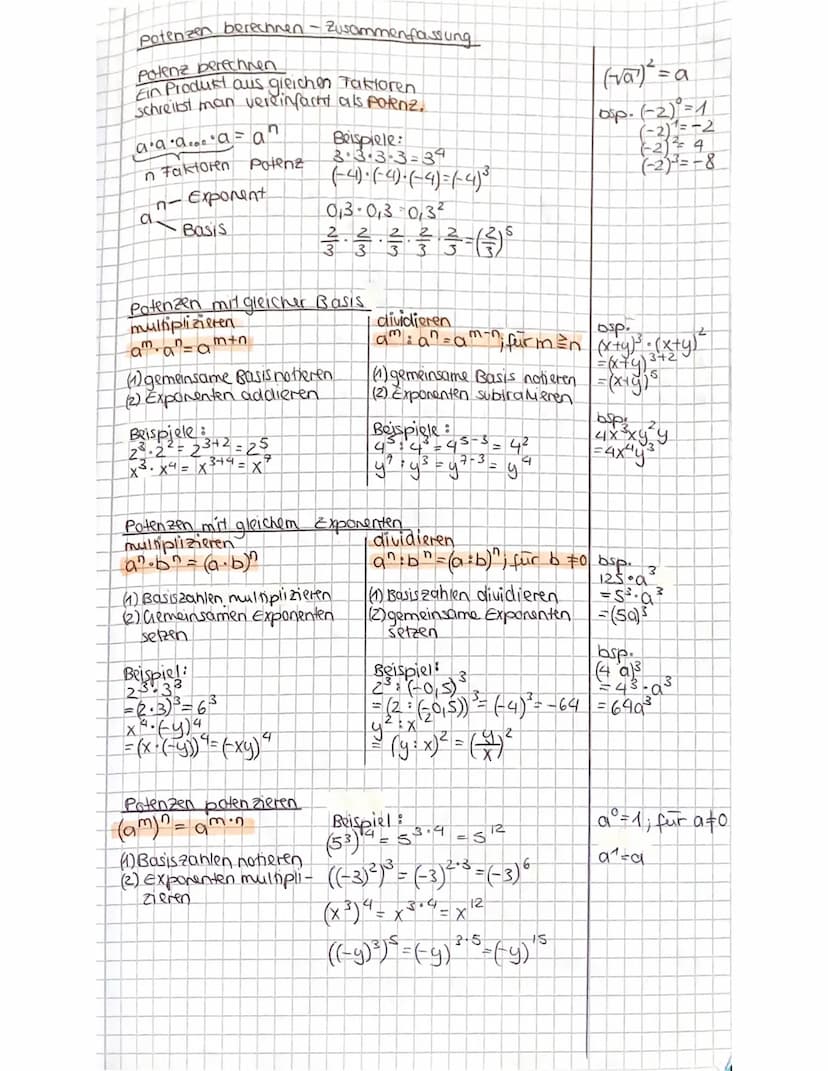 Potenzen berechnen - Zusammenfassung
Potenz berechnen
Ein Produkt aus gleichen Faktoren
schreibt man vereinfacht als Potenz.
a·a·a...·a = aⁿ
n Faktoren Potenz
aⁿ
n - Exponent
Basis
Beispiele:
3·3·3·3=3⁴
(-4)·(-4)·(-4)=(-4)³
0,3·0,3=0,3²
2/3 · 2/3 · 2/3 · 2/3 · 2/3 = (2/3)⁵
(√a)² = a
bsp. (-2)⁰=1
(-2)¹=-2
(-2)²= 4
(-2)³=-8
Potenzen mit gleicher Basis
multiplizieren
aᵐ·aⁿ=aᵐ⁺ⁿ
(1) gemeinsame Basis notieren
(2) Exponenten addieren
Beispiele:
2³·2²= 2³⁺²=2⁵
x³·x⁴= x³⁺⁴= x⁷
dividieren
aᵐ:aⁿ=aᵐ⁻ⁿ; für m≥n
(1) gemeinsame Basis notieren
(2) Exponenten subtrahieren
Beispiele:
4⁵:4³=4⁵⁻³=4²
y⁷:y³=y⁷⁻³=y⁴
bsp.
(x+y)³·(x+y)²
=(x+y)³⁺²
=(x+y)⁵
bsp.
4x³xy²y
=4x⁴y³
Potenzen mit gleichem Exponenten
multiplizieren
aⁿ·bⁿ=(a·b)ⁿ
(1) Basiszahlen multiplizieren
(2) Gemeinsamen Exponenten
setzen
Beispiel:
2³·3³
=(2·3)³=6³
x⁴·(-y)⁴
=(x·(-y))⁴=(-xy)⁴
dividieren
aⁿ:bⁿ=(a:b)ⁿ; für b≠0
(1) Basiszahlen dividieren
(2) gemeinsame Exponenten
setzen
Beispiel:
2³:(-0,5)³
=(2:(-0,5))³=(-4)³=-64
y²:x²
= (y:x)² = (y/x)²
bsp.
125·a³
=5³·a³
=(5a)³
bsp.
(4 a)³
=4³·a³
=64a³
Potenzen potenzieren
(aᵐ)ⁿ=aᵐ·ⁿ
(1) Basiszahlen notieren
(2) Exponenten multipli-
zieren
Beispiel:
(5³)⁴=5³·⁴=5¹²
((-3)²)³=(-3)²·³=(-3)⁶
(x³)⁴=x³·⁴=x¹²
((-y)³)⁵=(-y)³·⁵=(-y)¹⁵
a⁰=1; für a≠0
a¹=a